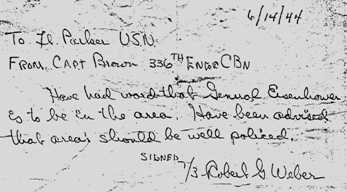 6/14/44
To Lt. Parker USN
From Capt Brown 336TH Engr C BN
Have had word that General Eisenhower
is to be in the area. Have been advised
that areas should be well policed.
SIGNED T/3 Robert G Weber